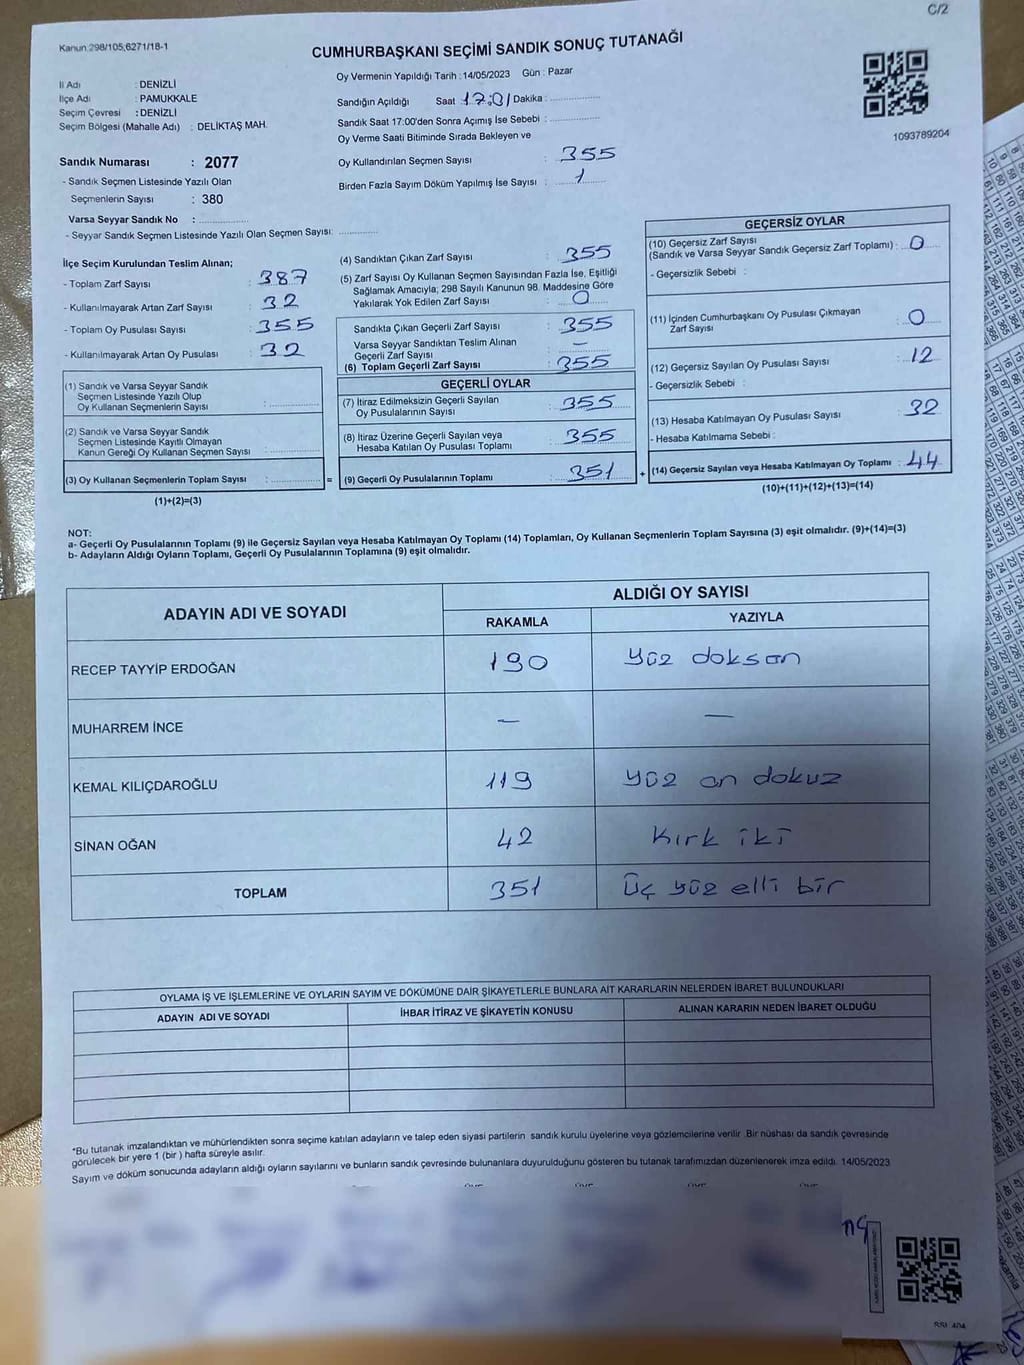 C/2
Kanun:298/105;6271/18-1
CUMHURBAŞKANI SEÇİMİ SANDIK SONUÇ TUTANAĞI
İl Adı : DENİZLİ
İlçe Adı : PAMUKKALE
Seçim Çevresi : DENİZLİ
Seçim Bölgesi (Mahalle Adı) : DELİKTAŞ MAH.
Oy Vermenin Yapıldığı Tarih : 14/05/2023 Gün : Pazar
Sandığın Açıldığı Saat 17:01 Dakika :
Sandık Saat 17:00'den Sonra Açımış İse Sebebi :
Oy Verme Saati Bitiminde Sırada Bekleyen ve
Oy Kullandırılan Seçmen Sayısı : 355
Birden Fazla Sayım Döküm Yapılmış İse Sayısı : 1
1093789204
Sandık Numarası : 2077
- Sandık Seçmen Listesinde Yazılı Olan
Seçmenlerin Sayısı : 380
Varsa Seyyar Sandık No :
- Seyyar Sandık Seçmen Listesinde Yazılı Olan Seçmen Sayısı:
İlçe Seçim Kurulundan Teslim Alınan;
- Toplam Zarf Sayısı : 387
- Kullanılmayarak Artan Zarf Sayısı : 32
- Toplam Oy Pusulası Sayısı : 355
- Kullanılmayarak Artan Oy Pusulası : 32
(1) Sandık ve Varsa Seyyar Sandık
Seçmen Listesinde Yazılı Olup
Oy Kullanan Seçmenlerin Sayısı :
(2) Sandık ve Varsa Seyyar Sandık
Seçmen Listesinde Kayıtlı Olmayan
Kanun Gereği Oy Kullanan Seçmen Sayısı :
(3) Oy Kullanan Seçmenlerin Toplam Sayısı : =
(1)+(2)=(3)
(4) Sandıktan Çıkan Zarf Sayısı : 355
(5) Zarf Sayısı Oy Kullanan Seçmen Sayısından Fazla İse, Eşitliği
Sağlamak Amacıyla; 298 Sayılı Kanunun 98. Maddesine Göre
Yakılarak Yok Edilen Zarf Sayısı : 0
Sandıkta Çıkan Geçerli Zarf Sayısı : 355
Varsa Seyyar Sandıktan Teslim Alınan
Geçerli Zarf Sayısı : —
(6) Toplam Geçerli Zarf Sayısı : 355
GEÇERLİ OYLAR
(7) İtiraz Edilmeksizin Geçerli Sayılan
Oy Pusulalarının Sayısı : 355
(8) İtiraz Üzerine Geçerli Sayılan veya
Hesaba Katılan Oy Pusulası Toplamı : 355
(9) Geçerli Oy Pusulalarının Toplamı : 351 +
GEÇERSİZ OYLAR
(10) Geçersiz Zarf Sayısı
(Sandık ve Varsa Seyyar Sandık Geçersiz Zarf Toplamı) : 0
- Geçersizlik Sebebi :
(11) İçinden Cumhurbaşkanı Oy Pusulası Çıkmayan
Zarf Sayısı : 0
(12) Geçersiz Sayılan Oy Pusulası Sayısı : 12
- Geçersizlik Sebebi :
(13) Hesaba Katılmayan Oy Pusulası Sayısı : 32
- Hesaba Katılmama Sebebi :
(14) Geçersiz Sayılan veya Hesaba Katılmayan Oy Toplamı : 44
(10)+(11)+(12)+(13)=(14)
NOT:
a- Geçerli Oy Pusulalarının Toplamı (9) ile Geçersiz Sayılan veya Hesaba Katılmayan Oy Toplamı (14) Toplamları, Oy Kullanan Seçmenlerin Toplam Sayısına (3) eşit olmalıdır. (9)+(14)=(3)
b- Adayların Aldığı Oyların Toplamı, Geçerli Oy Pusulalarının Toplamına (9) eşit olmalıdır.
ADAYIN ADI VE SOYADI
ALDIĞI OY SAYISI
RAKAMLA YAZIYLA
RECEP TAYYİP ERDOĞAN 190 yüz doksan
MUHARREM İNCE — —
KEMAL KILIÇDAROĞLU 119 yüz on dokuz
SİNAN OĞAN 42 kırk iki
TOPLAM 351 Üç yüz elli bir
OYLAMA İŞ VE İŞLEMLERİNE VE OYLARIN SAYIM VE DÖKÜMÜNE DAİR ŞİKAYETLERLE BUNLARA AİT KARARLARIN NELERDEN İBARET BULUNDUKLARI
ADAYIN ADI VE SOYADI İHBAR İTİRAZ VE ŞİKAYETİN KONUSU ALINAN KARARIN NEDEN İBARET OLDUĞU
*Bu tutanak imzalandıktan ve mühürlendikten sonra seçime katılan adayların ve talep eden siyasi partilerin sandık kurulu üyelerine veya gözlemcilerine verilir .Bir nüshası da sandık çevresinde
görülecek bir yere 1 (bir ) hafta süreyle asılır.
Sayım ve döküm sonucunda adayların aldığı oyların sayılarını ve bunların sandık çevresinde bulunanlara duyurulduğunu gösteren bu tutanak tarafımızdan düzenlenerek imza edildi. 14/05/2023